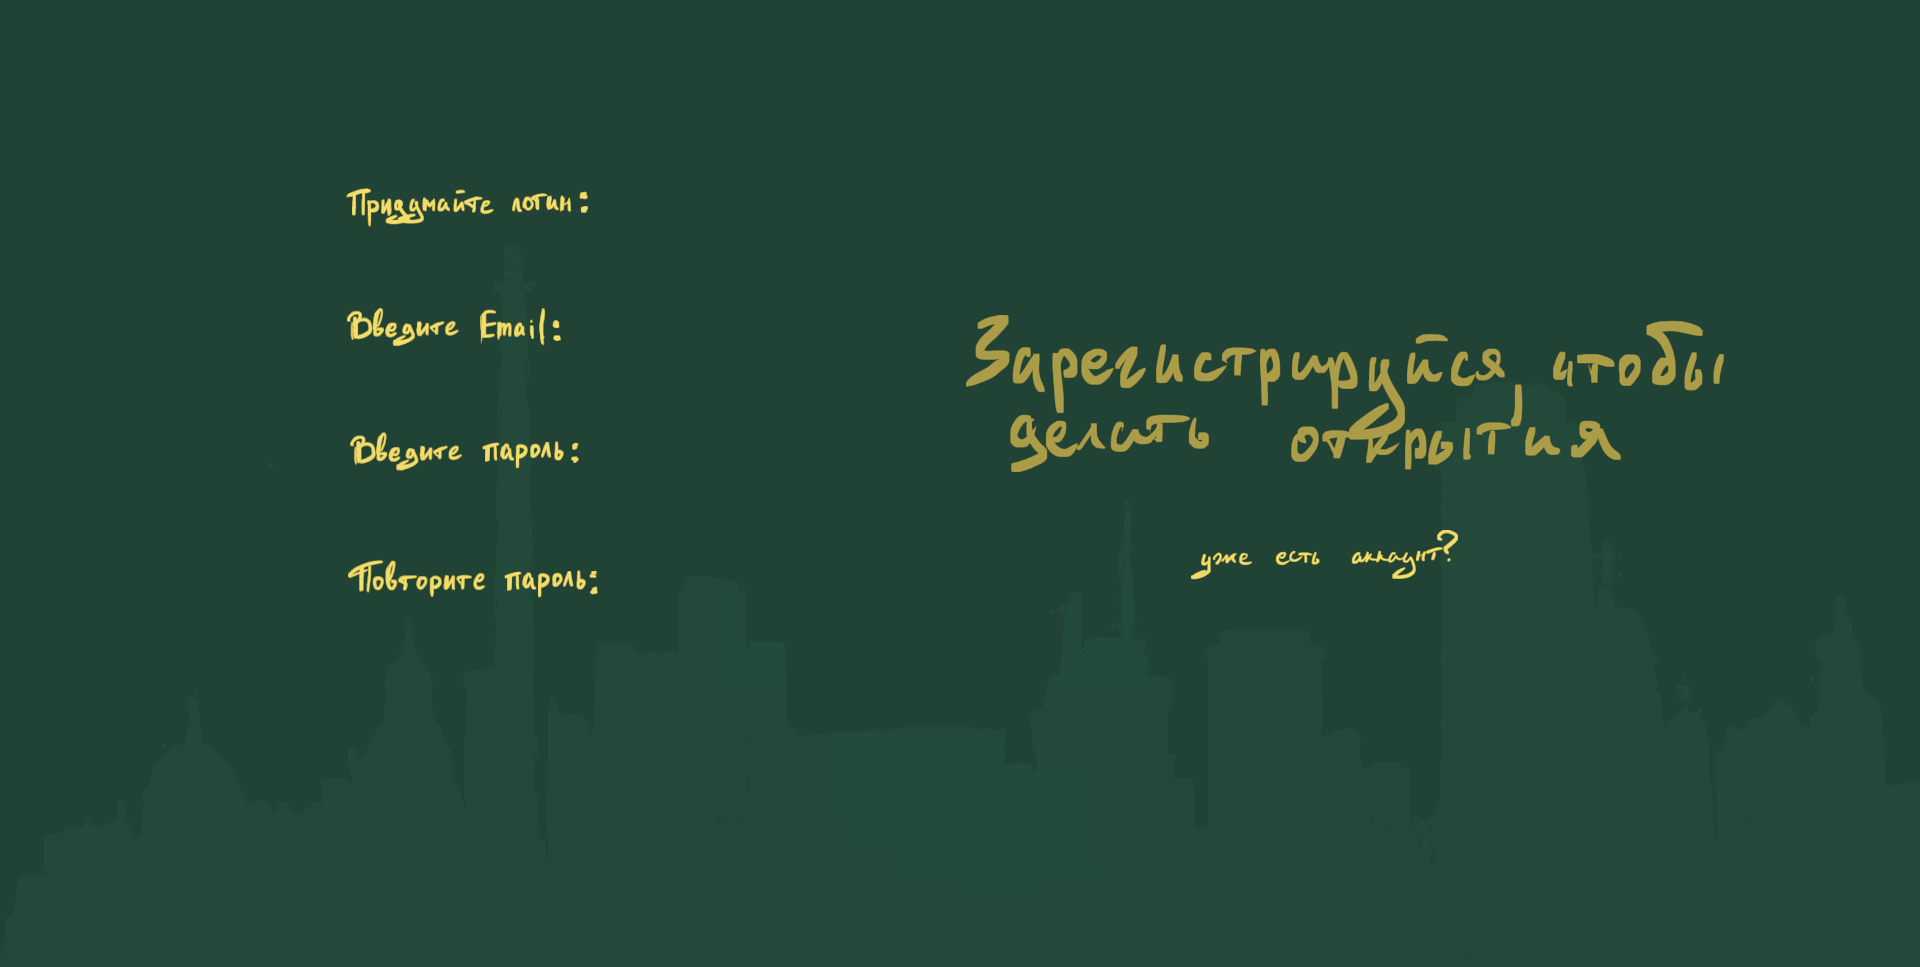 Придумайте логин:
Введите Email:
Введите пароль:
Повторите пароль:
Зарегистрируйся, чтобы
делать открытия
уже есть аккаунт?